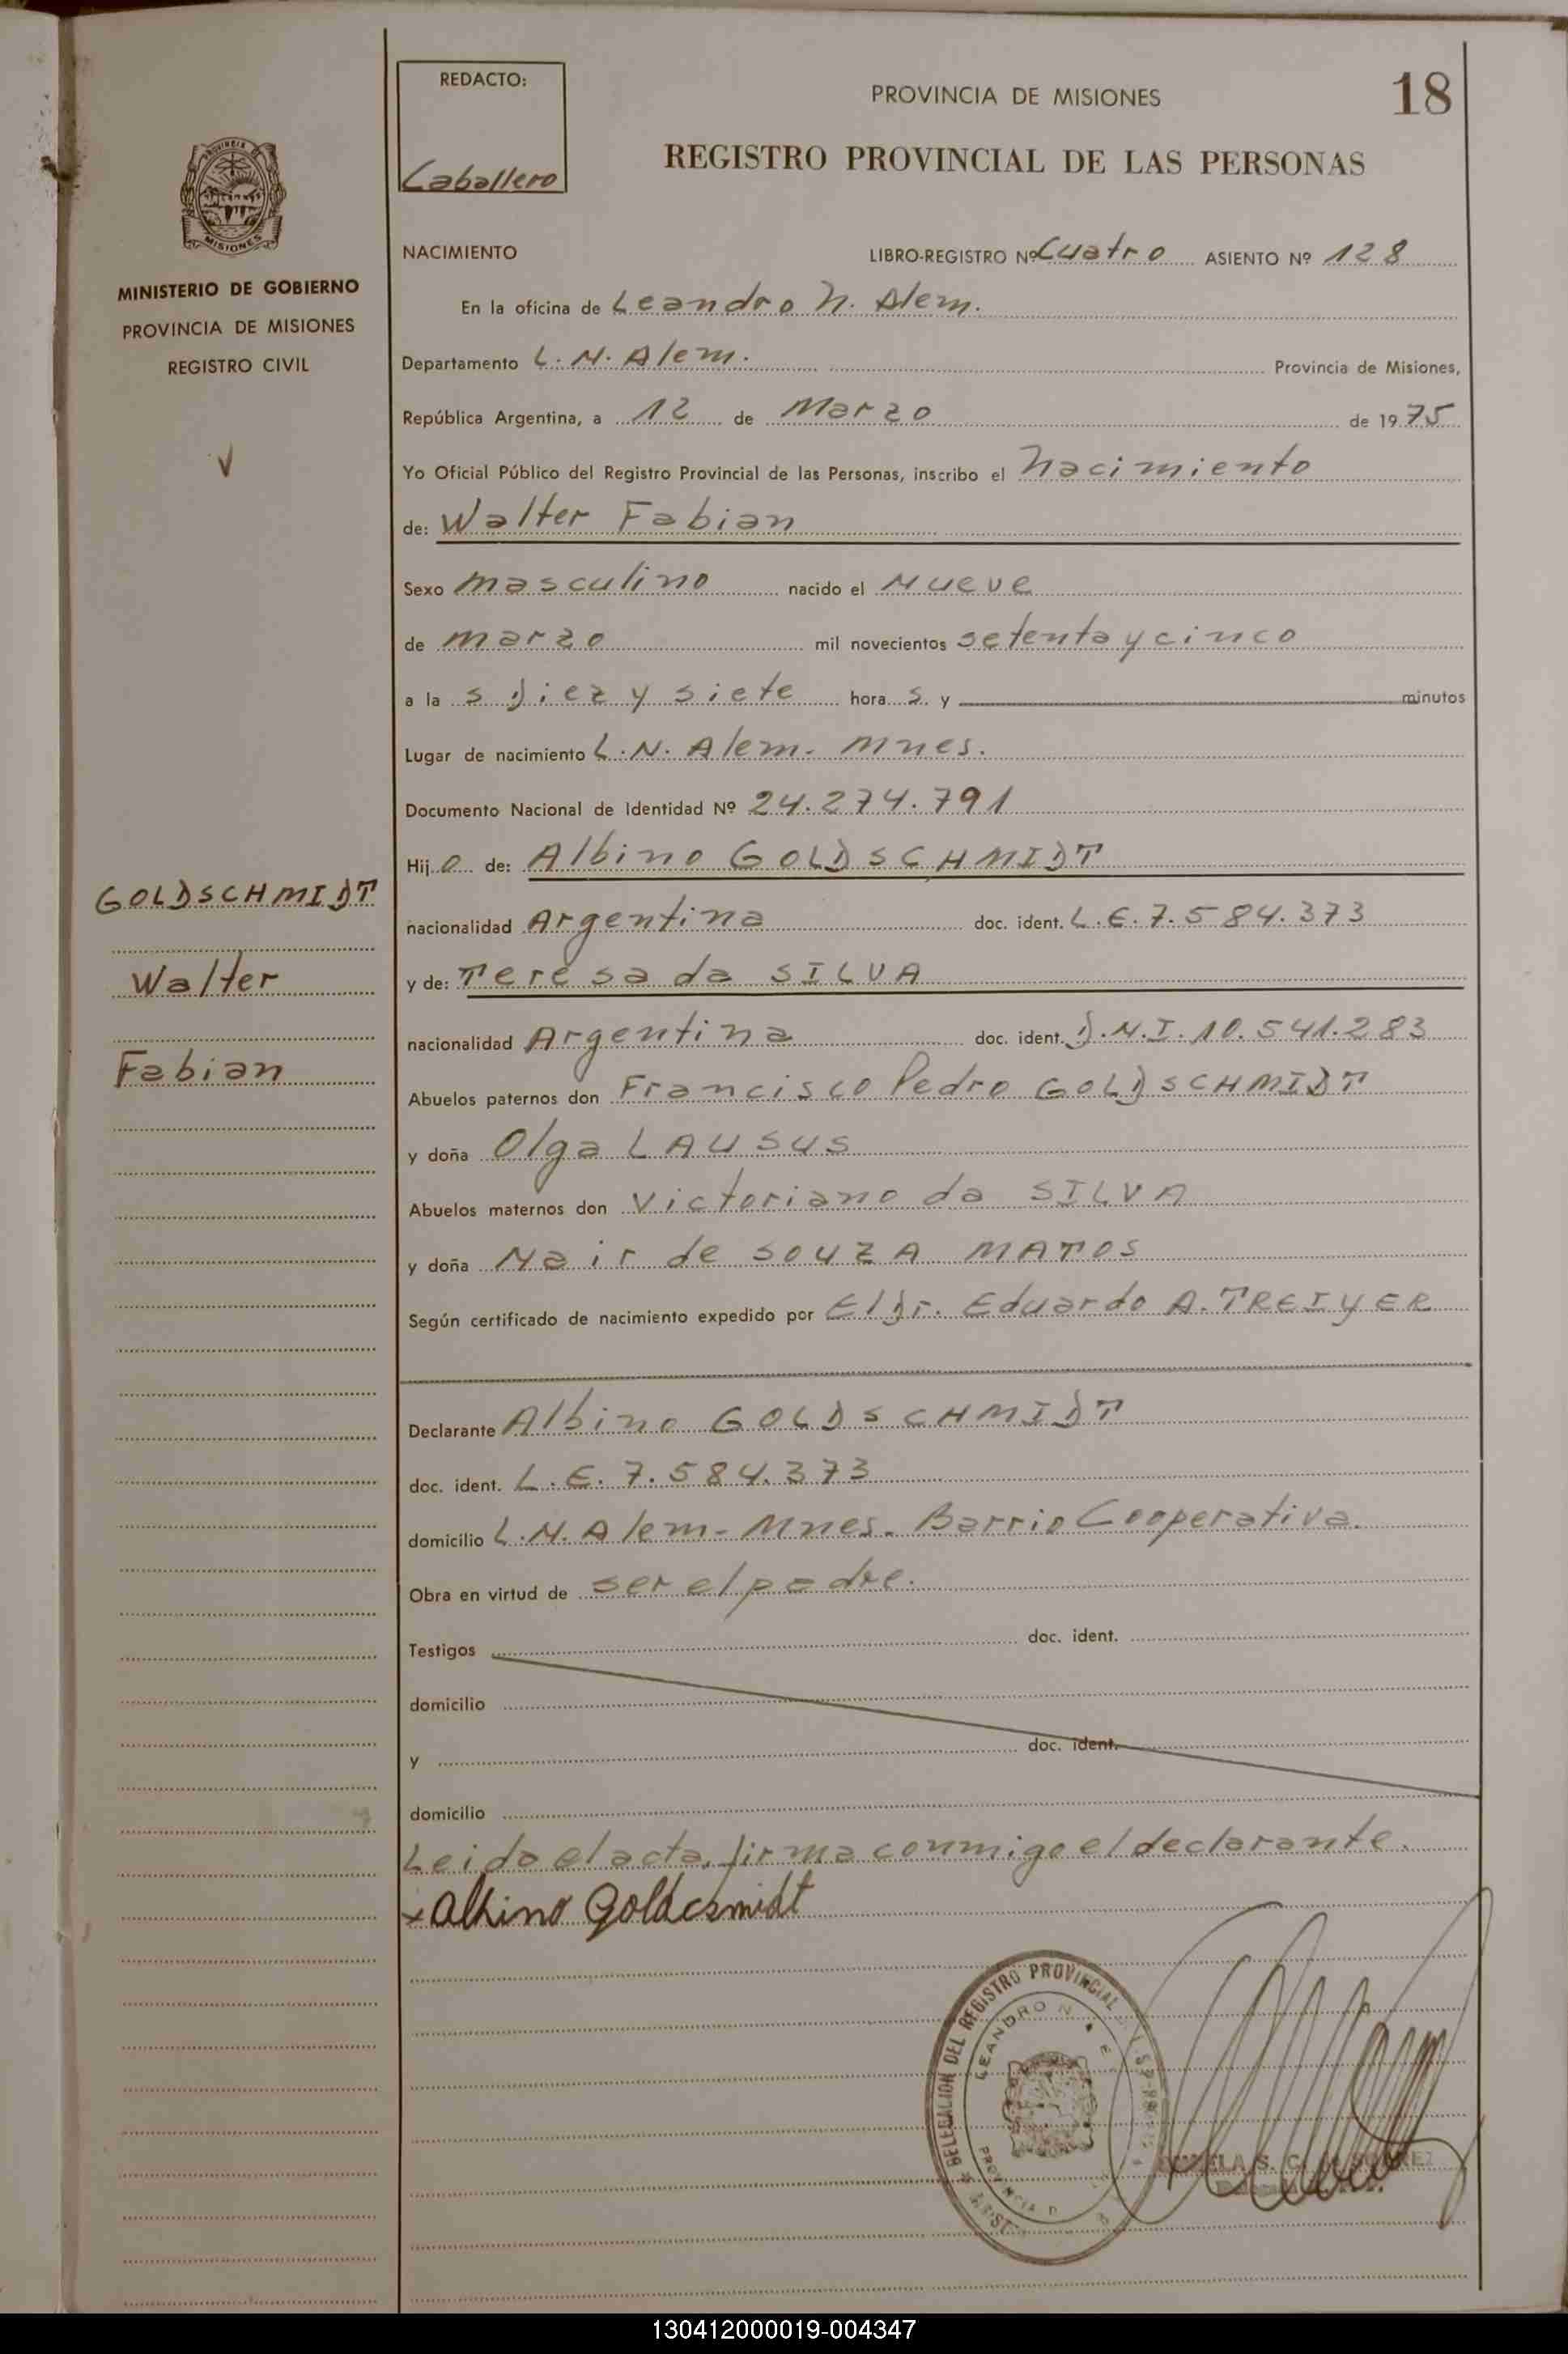 REDACTO:
Caballero
PROVINCIA DE MISIONES
18
REGISTRO PROVINCIAL DE LAS PERSONAS
MISIONES
MINISTERIO DE GOBIERNO
PROVINCIA DE MISIONES
REGISTRO CIVIL
NACIMIENTO LIBRO-REGISTRO Nº Cuatro ASIENTO Nº 128
En la oficina de Leandro N. Alem.
Departamento L. N. Alem. Provincia de Misiones,
República Argentina, a 12 de Marzo de 1975
Yo Oficial Público del Registro Provincial de las Personas, inscribo el Nacimiento
de: Walter Fabian
Sexo masculino nacido el Nueve
de marzo mil novecientos setenta y cinco
a la s Diez y siete hora s. y minutos
Lugar de nacimiento L. N. Alem. Mnes.
Documento Nacional de Identidad Nº 24.274.791
Hij o de: Albino GOLDSCHMIDT
nacionalidad Argentina doc. ident. L.E. 7.584.373
y de: Teresa da SILVA
nacionalidad Argentina doc. ident. D.N.I. 10.541.283
Abuelos paternos don Francisco Pedro GOLDSCHMIDT
y doña Olga LAUSUS
Abuelos maternos don Victoriano da SILVA
y doña Nair de SOUZA MATOS
Según certificado de nacimiento expedido por El Dr. Eduardo A. TREIYER
Declarante Albino GOLDSCHMIDT
doc. ident. L.E. 7.584.373
domicilio L.N. Alem - Mnes. Barrio Cooperativa.
Obra en virtud de ser el padre.
Testigos doc. ident.
domicilio
y doc. ident.
domicilio
Leida el acta, firma conmigo el declarante.
x Albino Goldcsmidt
GOLDSCHMIDT
Walter
Fabian
DELEGACION DEL REGISTRO PROVINCIAL
LEANDRO N.
PROVINCIA D
130412000019-004347